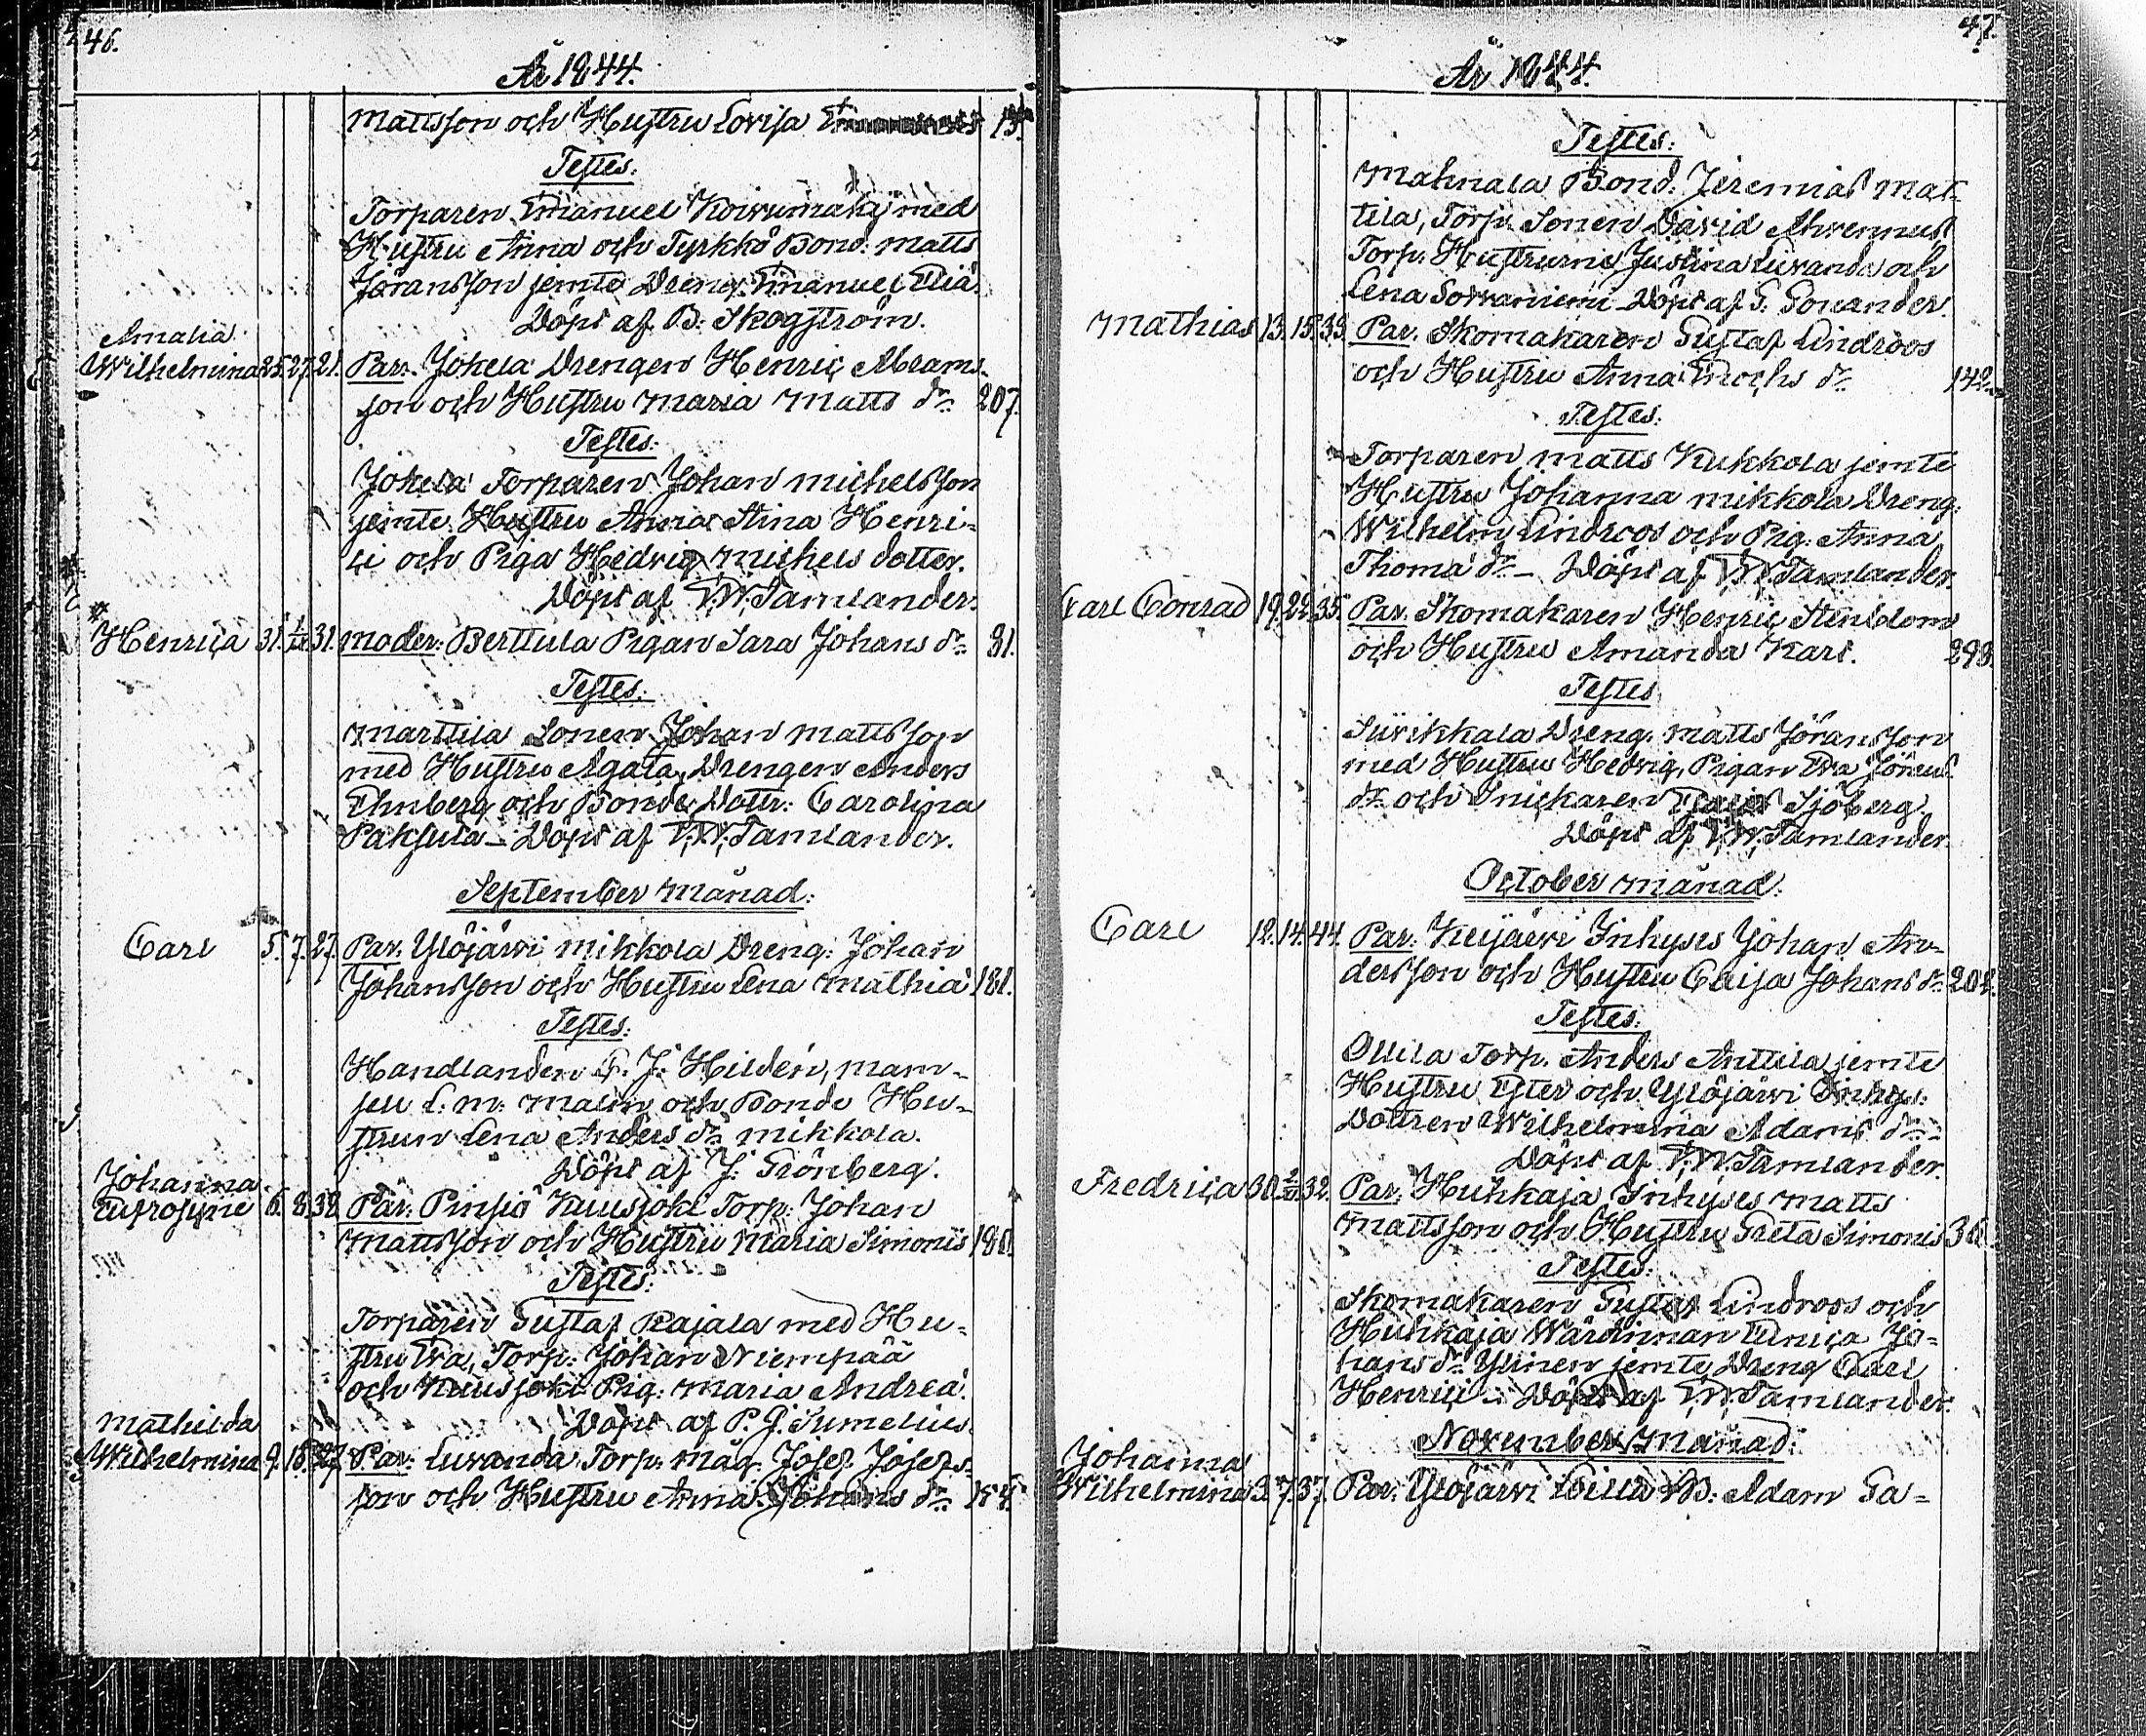 46.
År 1844.
Mattsson och Hustru Lovisa 13.
Testes.
Torparen Emanuel Koivumäki med
Hustru Anna och Tyrkkö Bond. Matts
Jöransson jemte Dreng. Emanuel Eliæ.
Döpt af B. Skogström.
Amalia
Wilhelmina 25. 27. 21. Par. Jokela Drengen Henric Abrams-
son och Hustru Maria Matts dr. 207.
Testes.
Jokela Torparen Johan Michelsson
jemte Hustru Anna Stina Henri-
ci och Piga Hedvig Michels dotter.
Döpt af F.W. Tamlander.
Henrica 31. 31. Moder: Berttula Pigan Sara Johans dr. 81.
Testes.
Marttila Sonen Johan Mattsson
med Hustru Agata, Drengen Anders
Ehnberg och Bonde Dottr: Carolina
Paksula - Döpt af F.W. Tamlander.
September Månad:
Carl 5. 7. 27. Par. Ylöjärvi Mikkola Dreng: Johan
Johansson och Hustru Lena Mathiæ 181.
Testes:
Handlanden J. Hildén, Mam-
sell L. M. Malin och Bonde Hu-
strun Lena Anders dr. Mikkola.
Döpt af J. Grönberg.
Johanna
Eufrosyne 6. 8. 38. Par: Pinsiö Kuusjoki Torp: Johan
Mattsson och Hustru Maria Simonis
Testes:
Torparen Gustaf Rajala med Hu-
stru Eva, Torp: Johan Niempää
och Kuusjoki Pig: Maria Andreæ.
Döpt af P. J. Sumelius.
Mathilda
Wilhelmina 9. 15. 27. Par: Luvanda Torp. Måg. Josef Josefs-
son och Hustru Anna Johans dr.
47.
År 1844.
Testes:
Mahnala Bond: Jeremias Mat-
tila, Torp. Sonen David Ahvennus
Torp. Hustrurne Justina Luvanda och
Lena Sorvaniemi Döpt af G. Gonander.
Mathias 13. 15. 33. Par. Skomakaren Gustaf Lindroos
och Hustru Anna Enochs dr. 142.
Testes:
Torparen Matts Kukkola jemte
Hustru Johanna Mikkola Dreng.
Wilhelm Lindroos och Pig: Anna
Thomæ dr. - Döpt af F.W. Tamlander.
Carl Conrad 19. 22. 35. Par. Skomakaren Henric Stenblom
och Hustru Amanda Karl. 298.
Testes
Siivikkala Dreng: Matts Jöransson
med Hustru Hedvig, Pigan Eva Jörans
dr. och Snickaren Sjöberg.
Döpt af F.W. Tamlander.
October Månad:
Carl 12. 14. 44. Par: Keijärvi Inhyses Johan An-
dersson och Hustru Caisa Johans dr. 202.
Testes:
Ollila Torp. Anders Anttila jemte
Hustru Ester och Ylöjärvi Inhys:
Dottren Wilhelmina Adams dr.
Döpt af F.W. Tamlander.
Fredrica 30. 32. Par: Huhkaja Inhyses Matts
Mattsson och Hustru Greta Simonis 36.
Testes:
Skomakaren Gustaf Lindroos och
Huhkaja Wärdinnan Ulrica Jo-
hans dr. Ylinen jemte Dreng Carl
Henrici - Döpt af F.W. Tamlander.
November Månad:
Johanna
Wilhelmina 3. 7. 37. Par: Ylöjärvi B: Adam Ga-